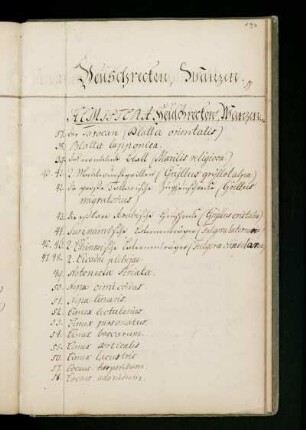 Heuschrecken, Wanzen.
HEMIPTERA. Heuschrecken, Wanzen.
37. (Blatta orientalis)
38. Blatta lapponica.
39. (Mantis religiosa)
40. 41. 2 (Gryllus gryllotalpa)
42. die große Tatarische (Gryllus
migratorius)
43. (Gryllus cristatus)
44. Surinamische Laternenträger (Fulgora laternaria
45. 46. 2. Chinesische Laternenträger (Fulgora candelaria
47. 48. 2. Cicada plebeja.
49. Notonecta striata.
50. Nepa cimicoides
51. Nepa linearis.
52. Cimex lectularius
53. Cimex personatus.
54. Cimex baccarum.
55. Cimex
56. Cimex lacustris
57. Coccus hesperidum
58. Coccus adonidum.